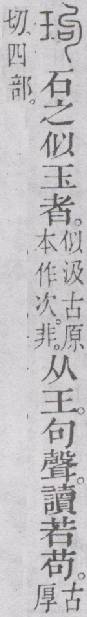 玽
石之似玉者。
似汲古原
本作次。非。
从王。句聲。讀若苟。
古厚
切。四部。